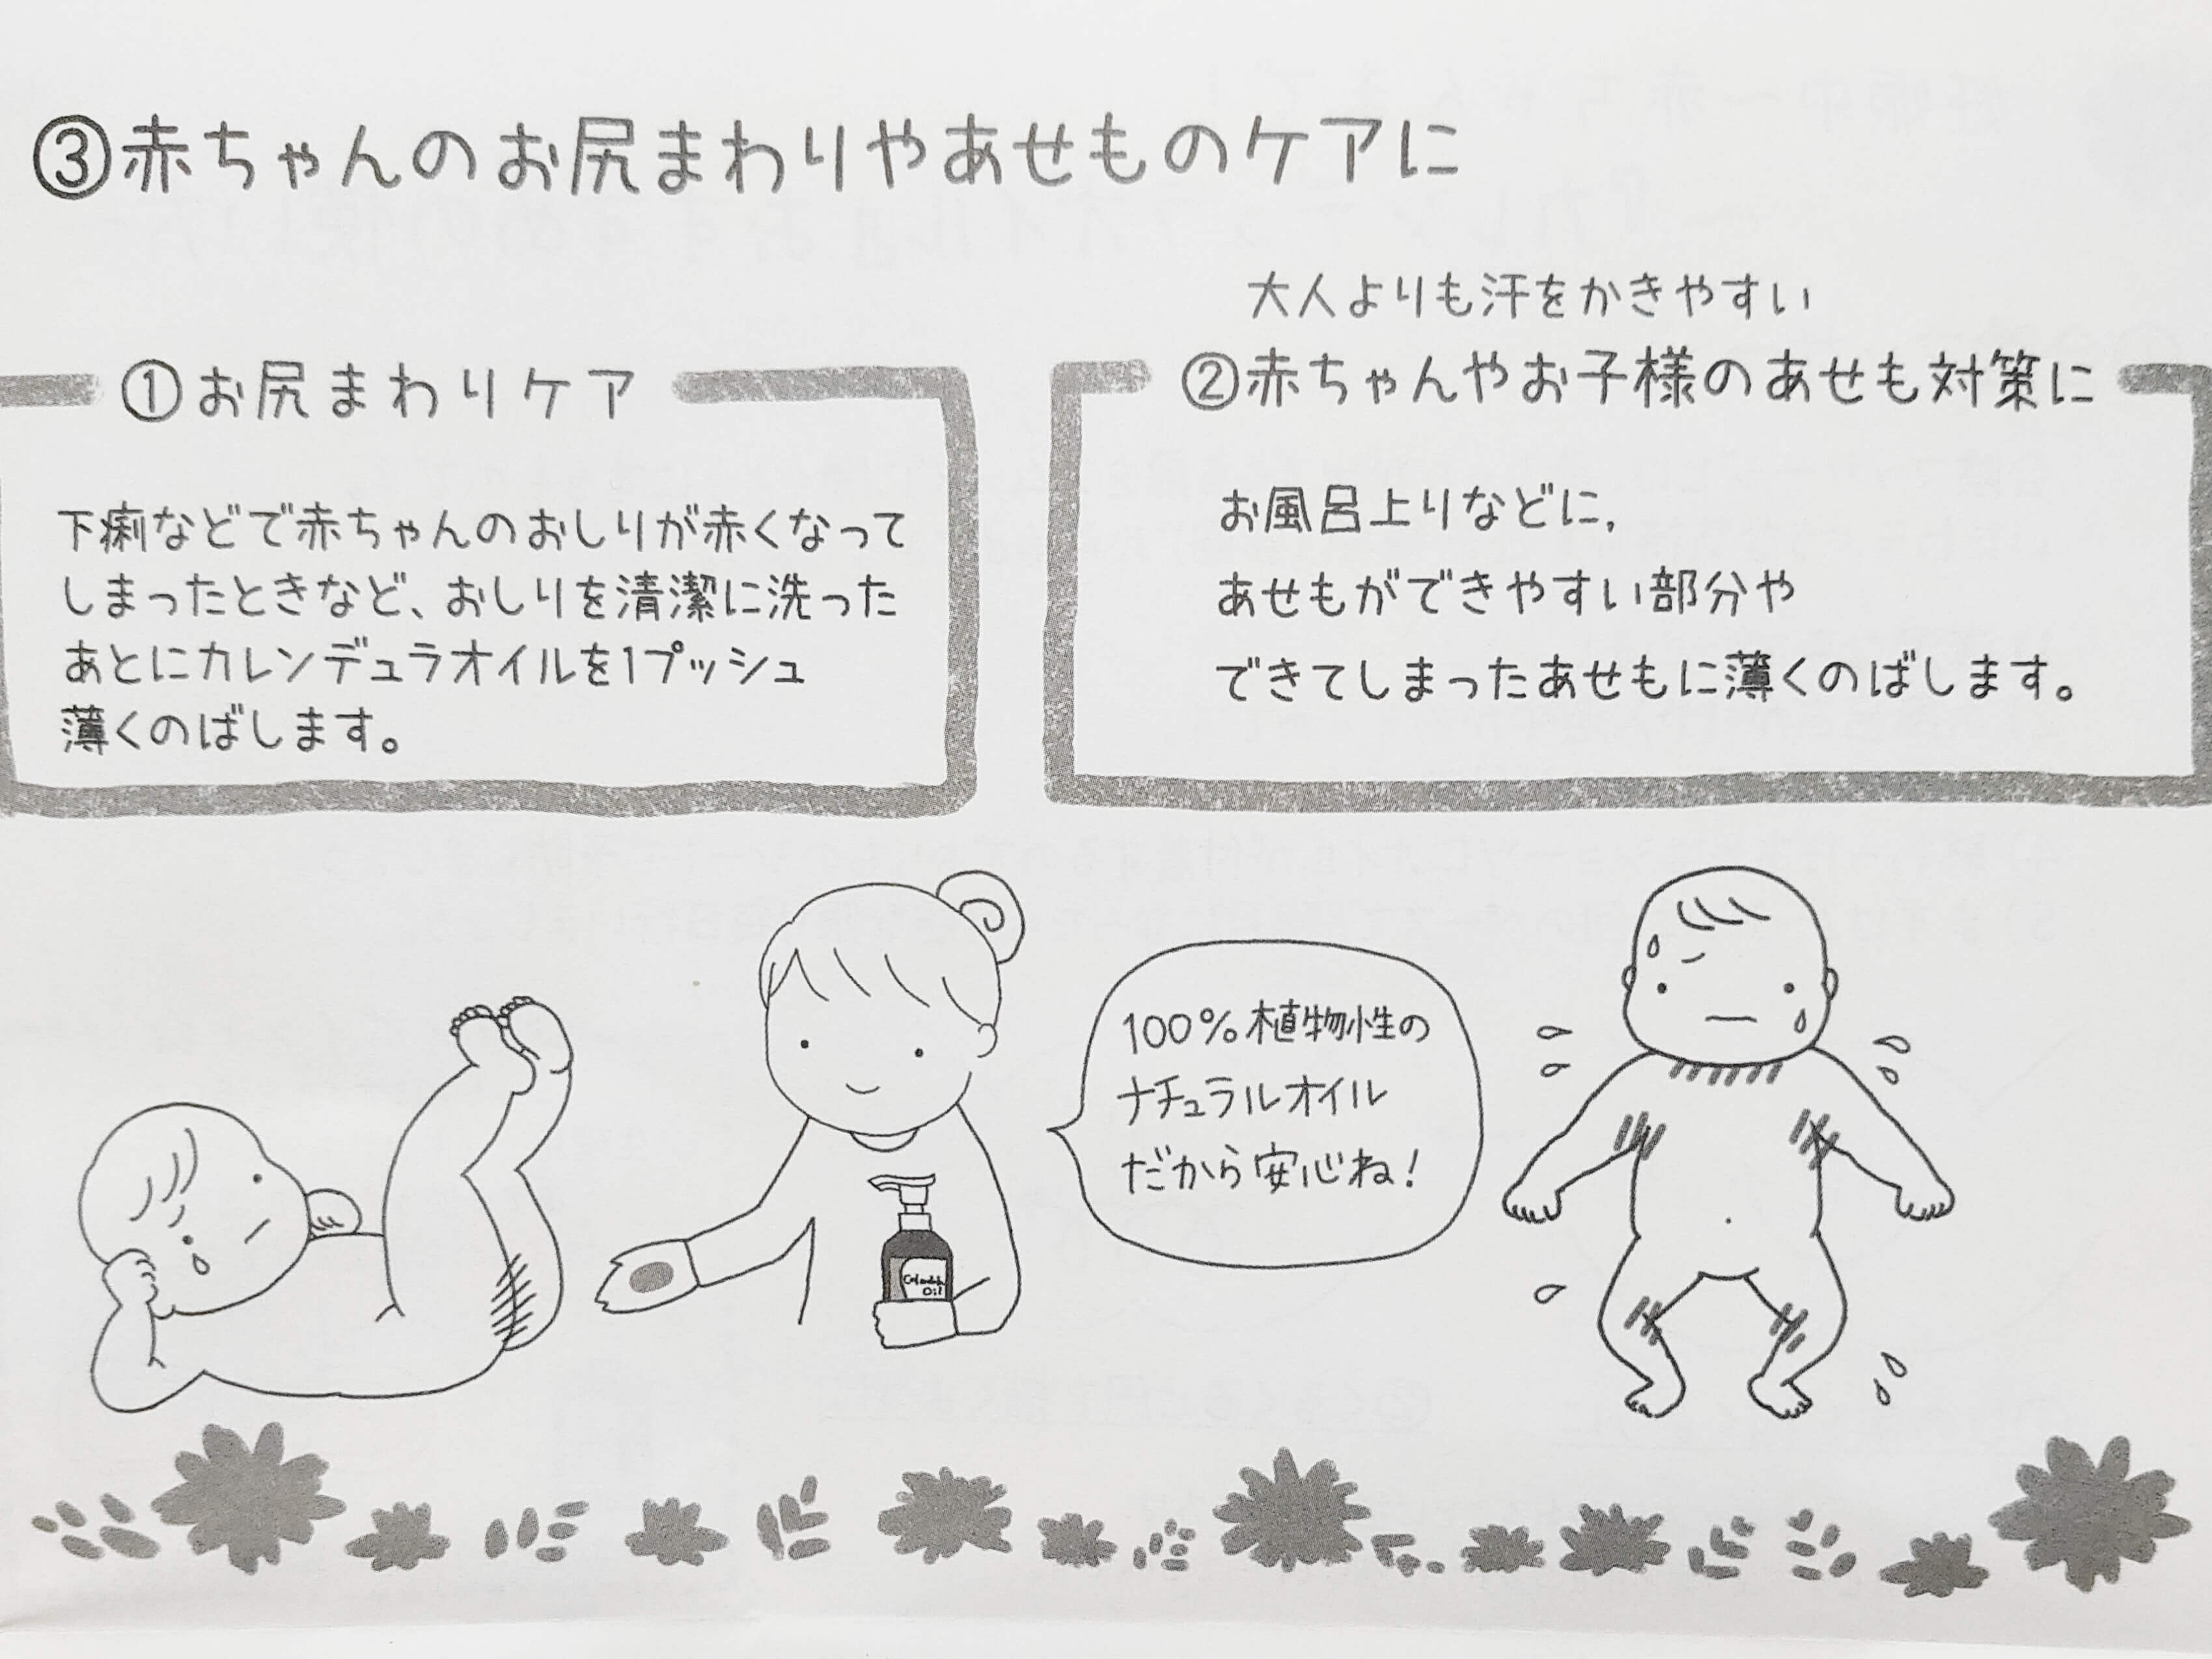 ③赤ちゃんのお尻まわりやあせものケアに
①お尻まわりケア
下痢などで赤ちゃんのおしりが赤くなって
しまったときなど、おしりを清潔に洗った
あとにカレンデュラオイルを1プッシュ
薄くのばします。
大人よりも汗をかきやすい
②赤ちゃんやお子様のあせも対策に
お風呂上りなどに,
あせもができやすい部分や
できてしまったあせもに薄くのばします。
100%植物性の
ナチュラルオイル
だから安心ね!
Oil